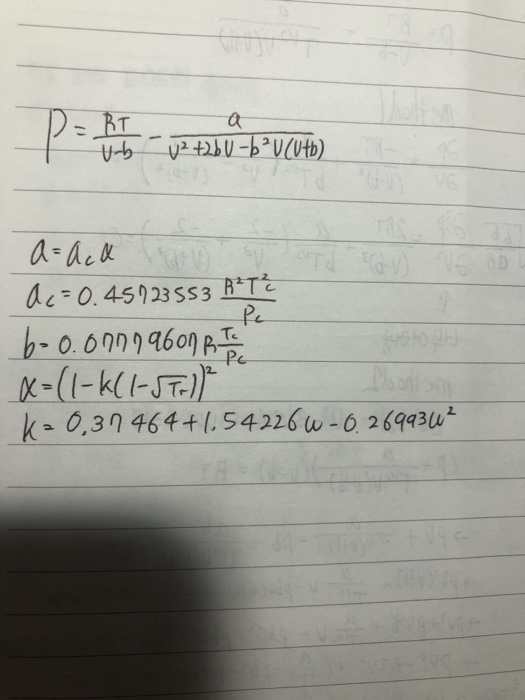 P = RT/(v-b) - a/(v²+2bv-b²v(v+b))
a = acα
ac = 0.45723553 R²Tc²/Pc
b = 0.07779607 R Tc/Pc
α = (1-k(1-√Tr))²
k = 0.37464+1.54226w-0.26993w²